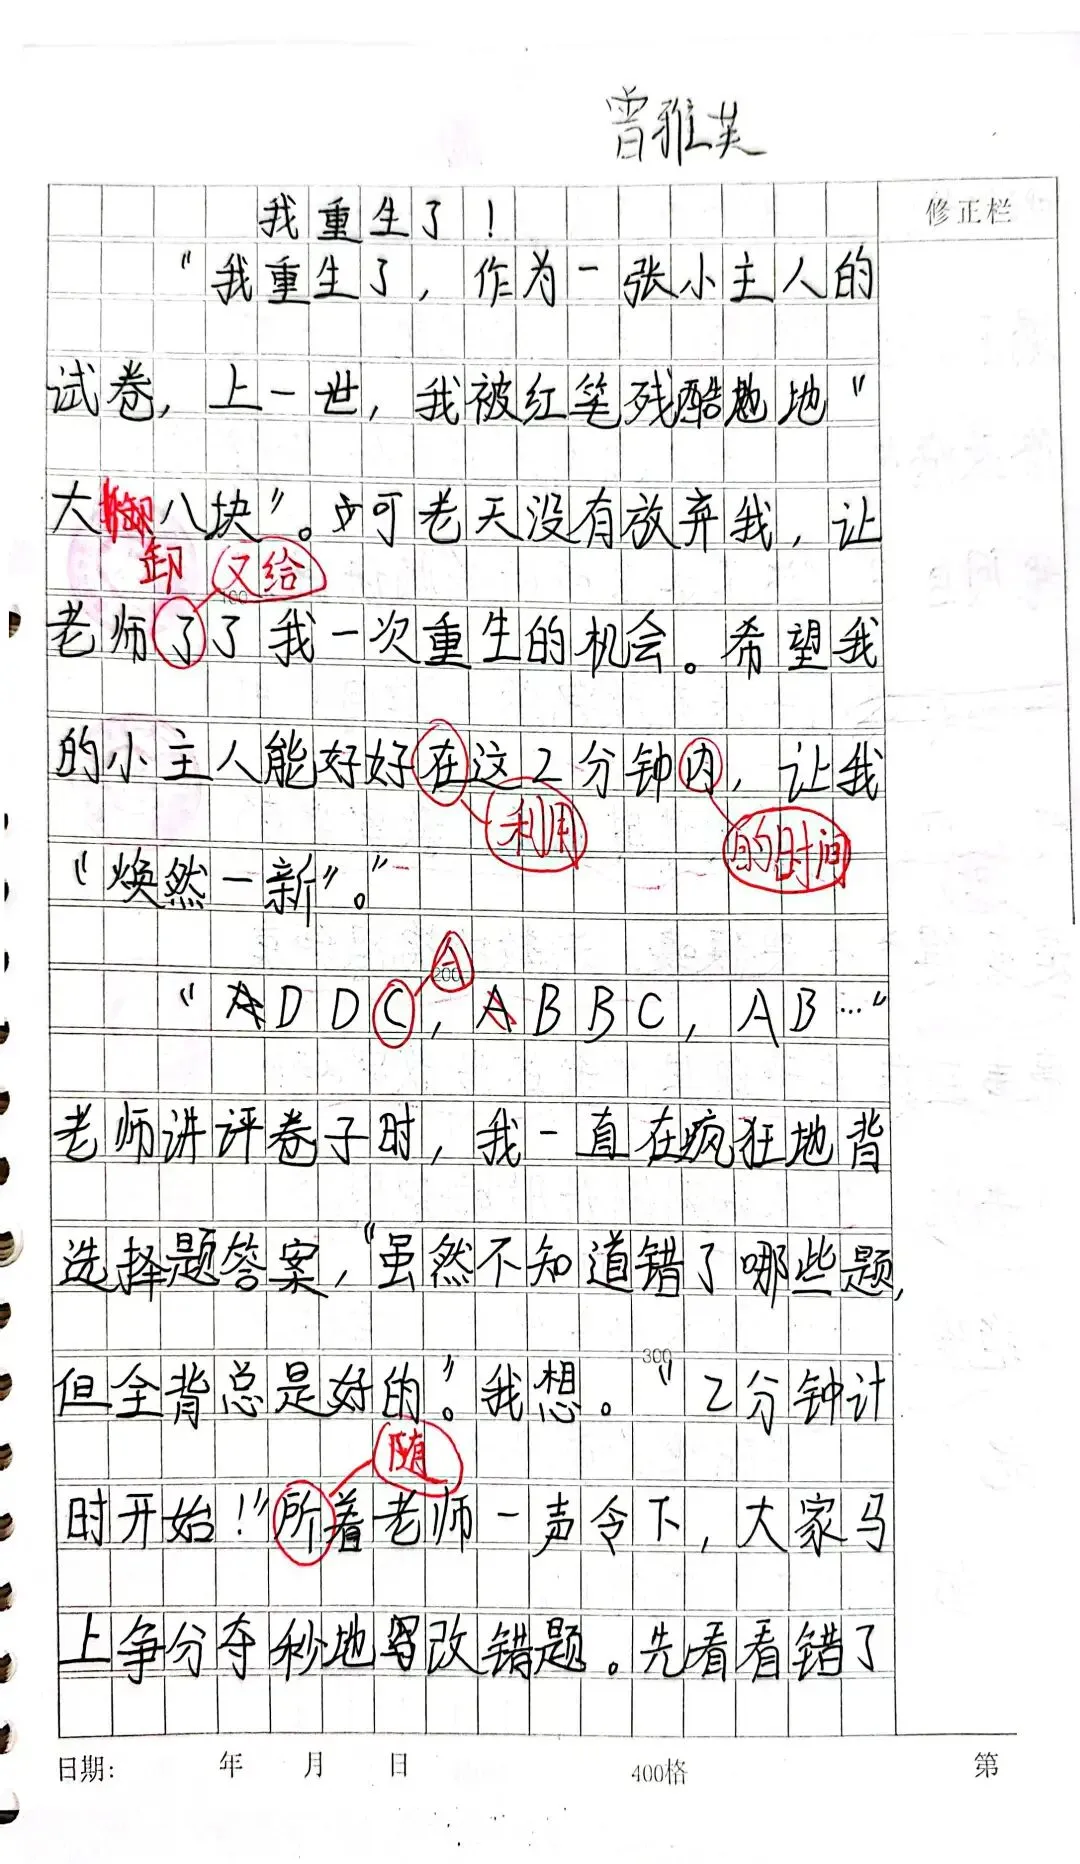 曾雅芙
修正栏
我重生了！
“我重生了，作为一张小主人的
试卷，上一世，我被红笔残酷地地“
大卸八块”。可老天没有放弃我，让
卸 又给
100
老师了了我一次重生的机会。希望我
的小主人能好好在这2分钟内，让我
利用 的时间
“焕然一新”。”
会
200
“ADDC，ABBC，AB…”
老师讲评卷子时，我一直在疯狂地背
选择题答案，“虽然不知道错了哪些题，
300
但全背总是好的。”我想。“2分钟计
随
时开始！”所着老师一声令下，大家马
上争分夺秒地改错题。先看看错了
日期： 年 月 日 400格 第